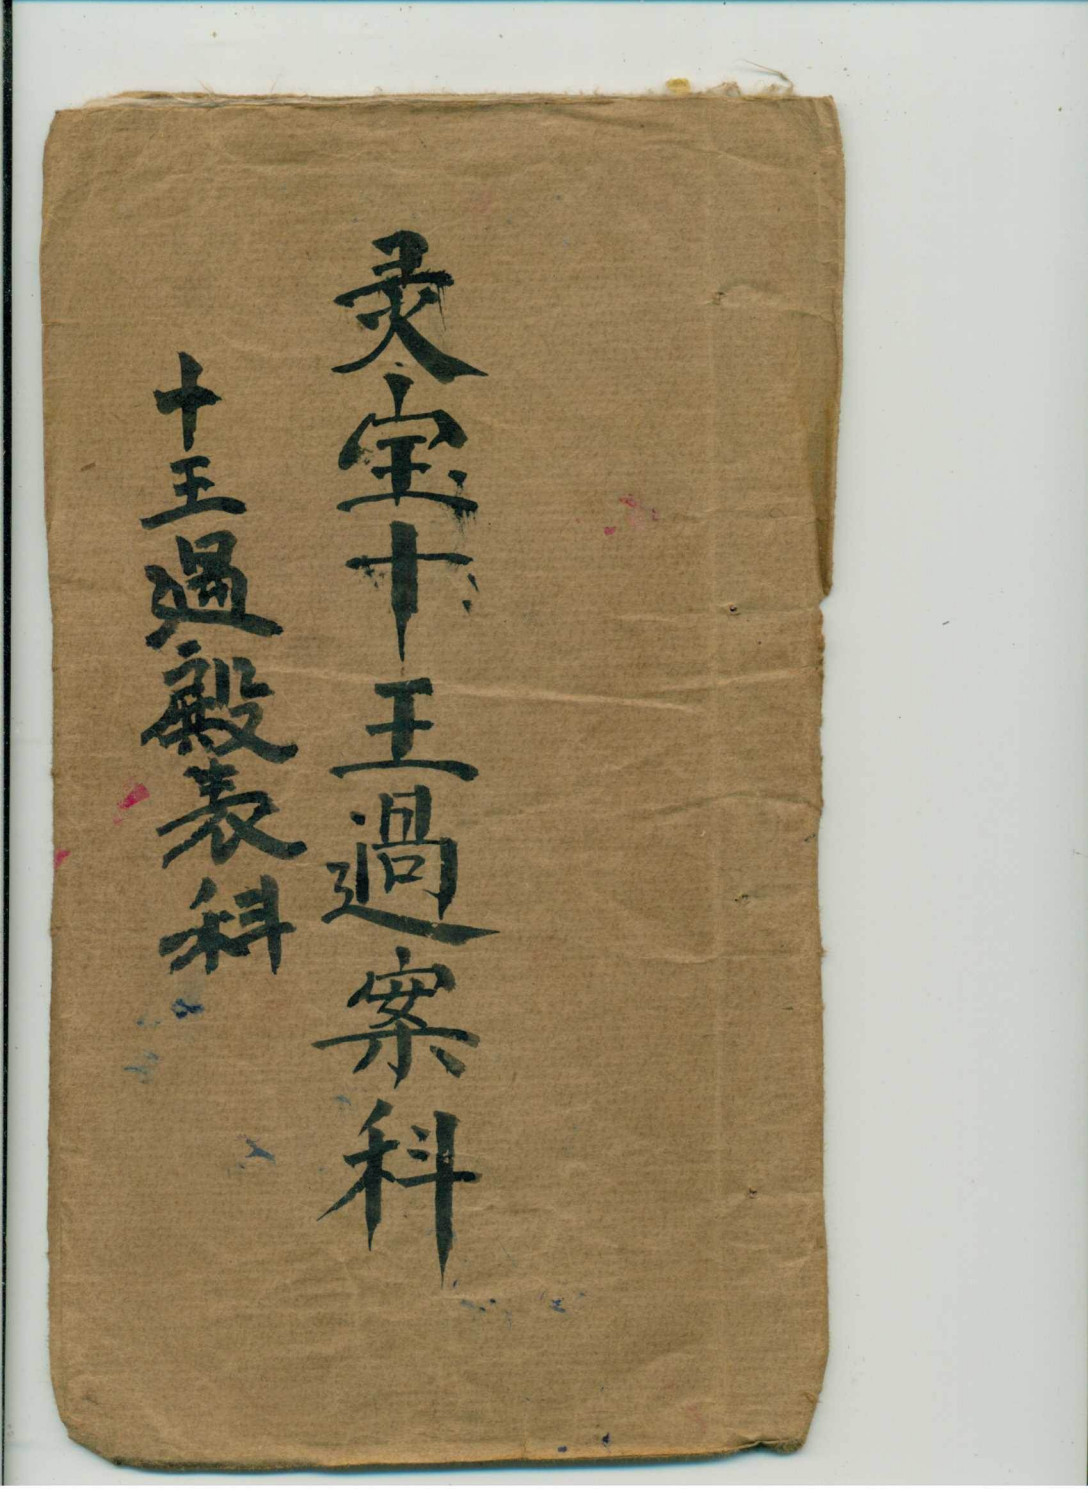 灵宝十王過案科
十王過殿表科